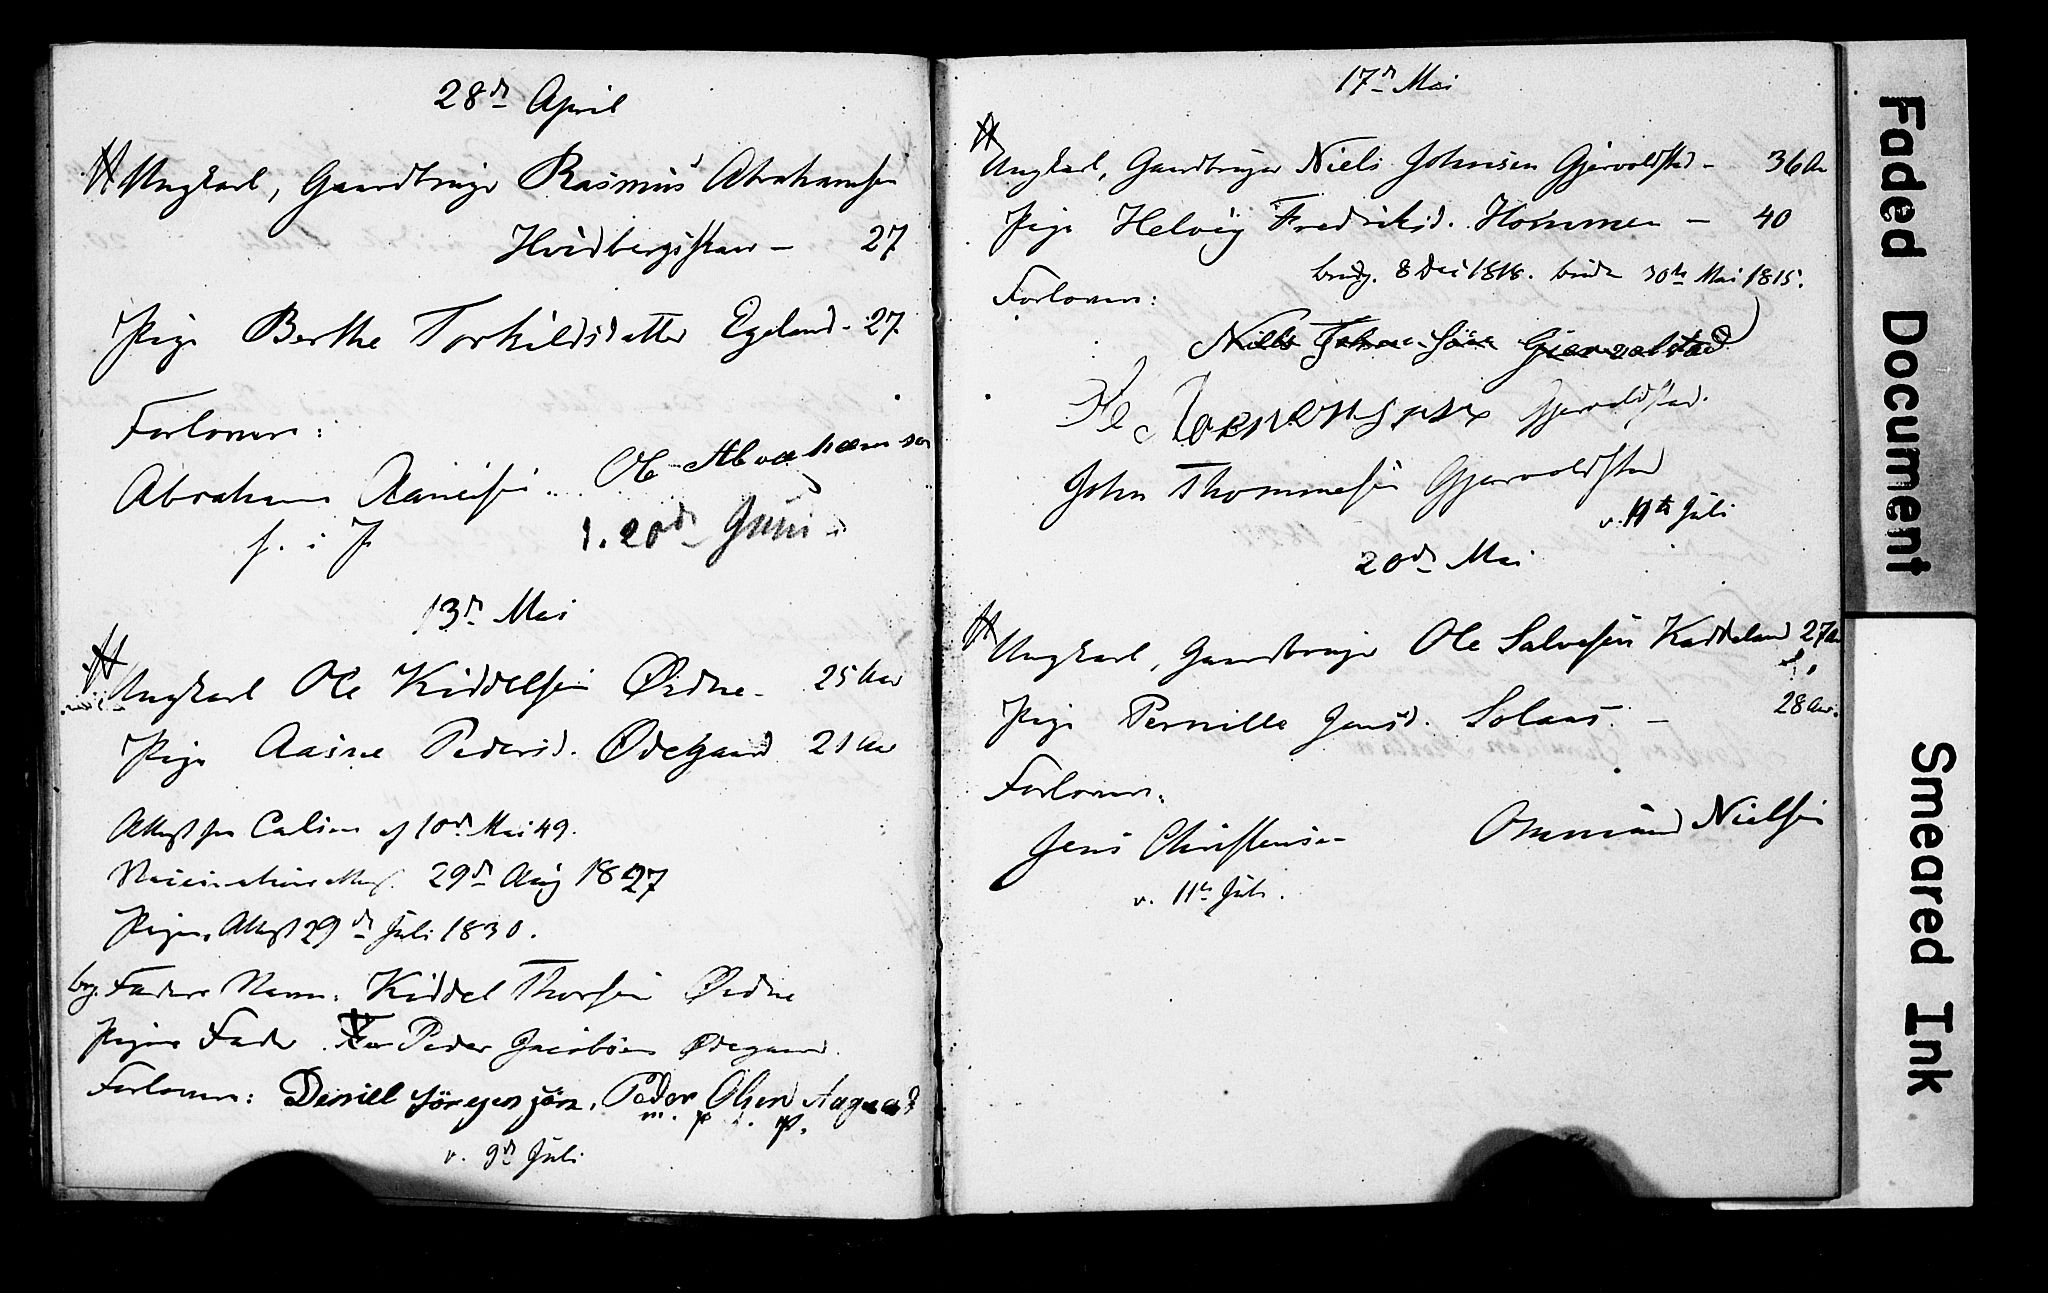 28de April
Ungkarl, Gaardbruger Rasmus Abrahamsen
Hvidbergskaar - 27
Pige Berthe Torkildsdatter Egeland - 27
Forlovere:
Abraham Danielsen Ole Abrahamson
1. 20de Juni
13de Mai
Ungkarl Ole Kiddelsen Ørdne - 25 Aar
Pige Aasne Pedersd. Ødegaard 21 Aar
Attest fra Calien af 10de Mai 49.
Vaccinationsattest 29de Aug 1827
Pigens Attest 29de Juli 1830.
brg. Faders Navn: Kiddel Thorsen Ørdne
Pigens Fader Peder Jacobsen Ødegaard.
Forlovere: Daniell Peder Olsen
m. p. P.
v. 9de Juli
17de Mai
Ungkarl, Gaardbruger Niels Johnsen Gjervoldstad - 36 Aar
Pige Helvig Fredriksd. Hommen - 40
brudg. 8 Dec 1818. brude 30te Mai 1815.
Forlovere:
Niels Gjervolstad
Gjervoldstad.
John Thommesen Gjervoldstad
v. 11te Juli
20de Mai
Ungkarl, Gaardbruger Ole Salvesen Kaddeland 27 Aar
Pige Pernille Jensd. Solaas - 28 Aar.
Forlovere:
Jens Christensen Ommund Nielsen
v. 11te Juli.
Faded Document
Smeared Ink